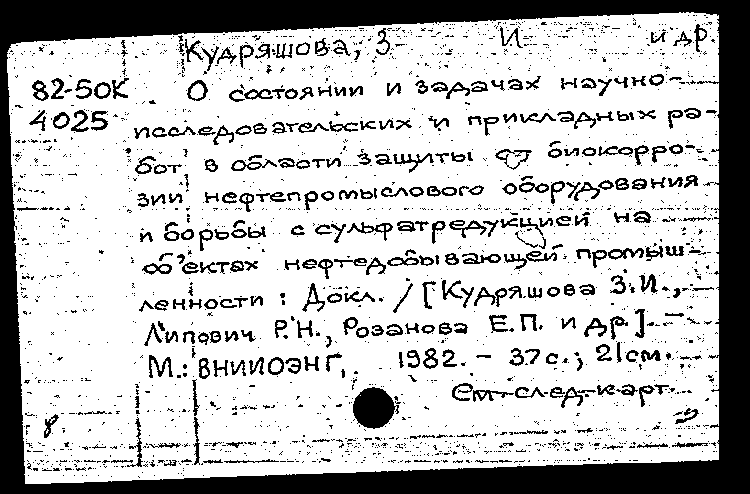 Кудряшова, З И и др
82-50К О состоянии и задачах научно-
4025 исследовательских и прикладных ра-
бот в области защиты от биокорро-
зии нефтепромыслового оборудования
и борьбы с сульфатредукцией на
объектах нефтедобывающей промыш-
ленности : Докл. / [Кудряшова З.И.,
Липович Р.Н., Розанова Е.П. и др]. —
М.: ВНИИОЭНГ, 1982. – 37с.; 21см.
См след карт